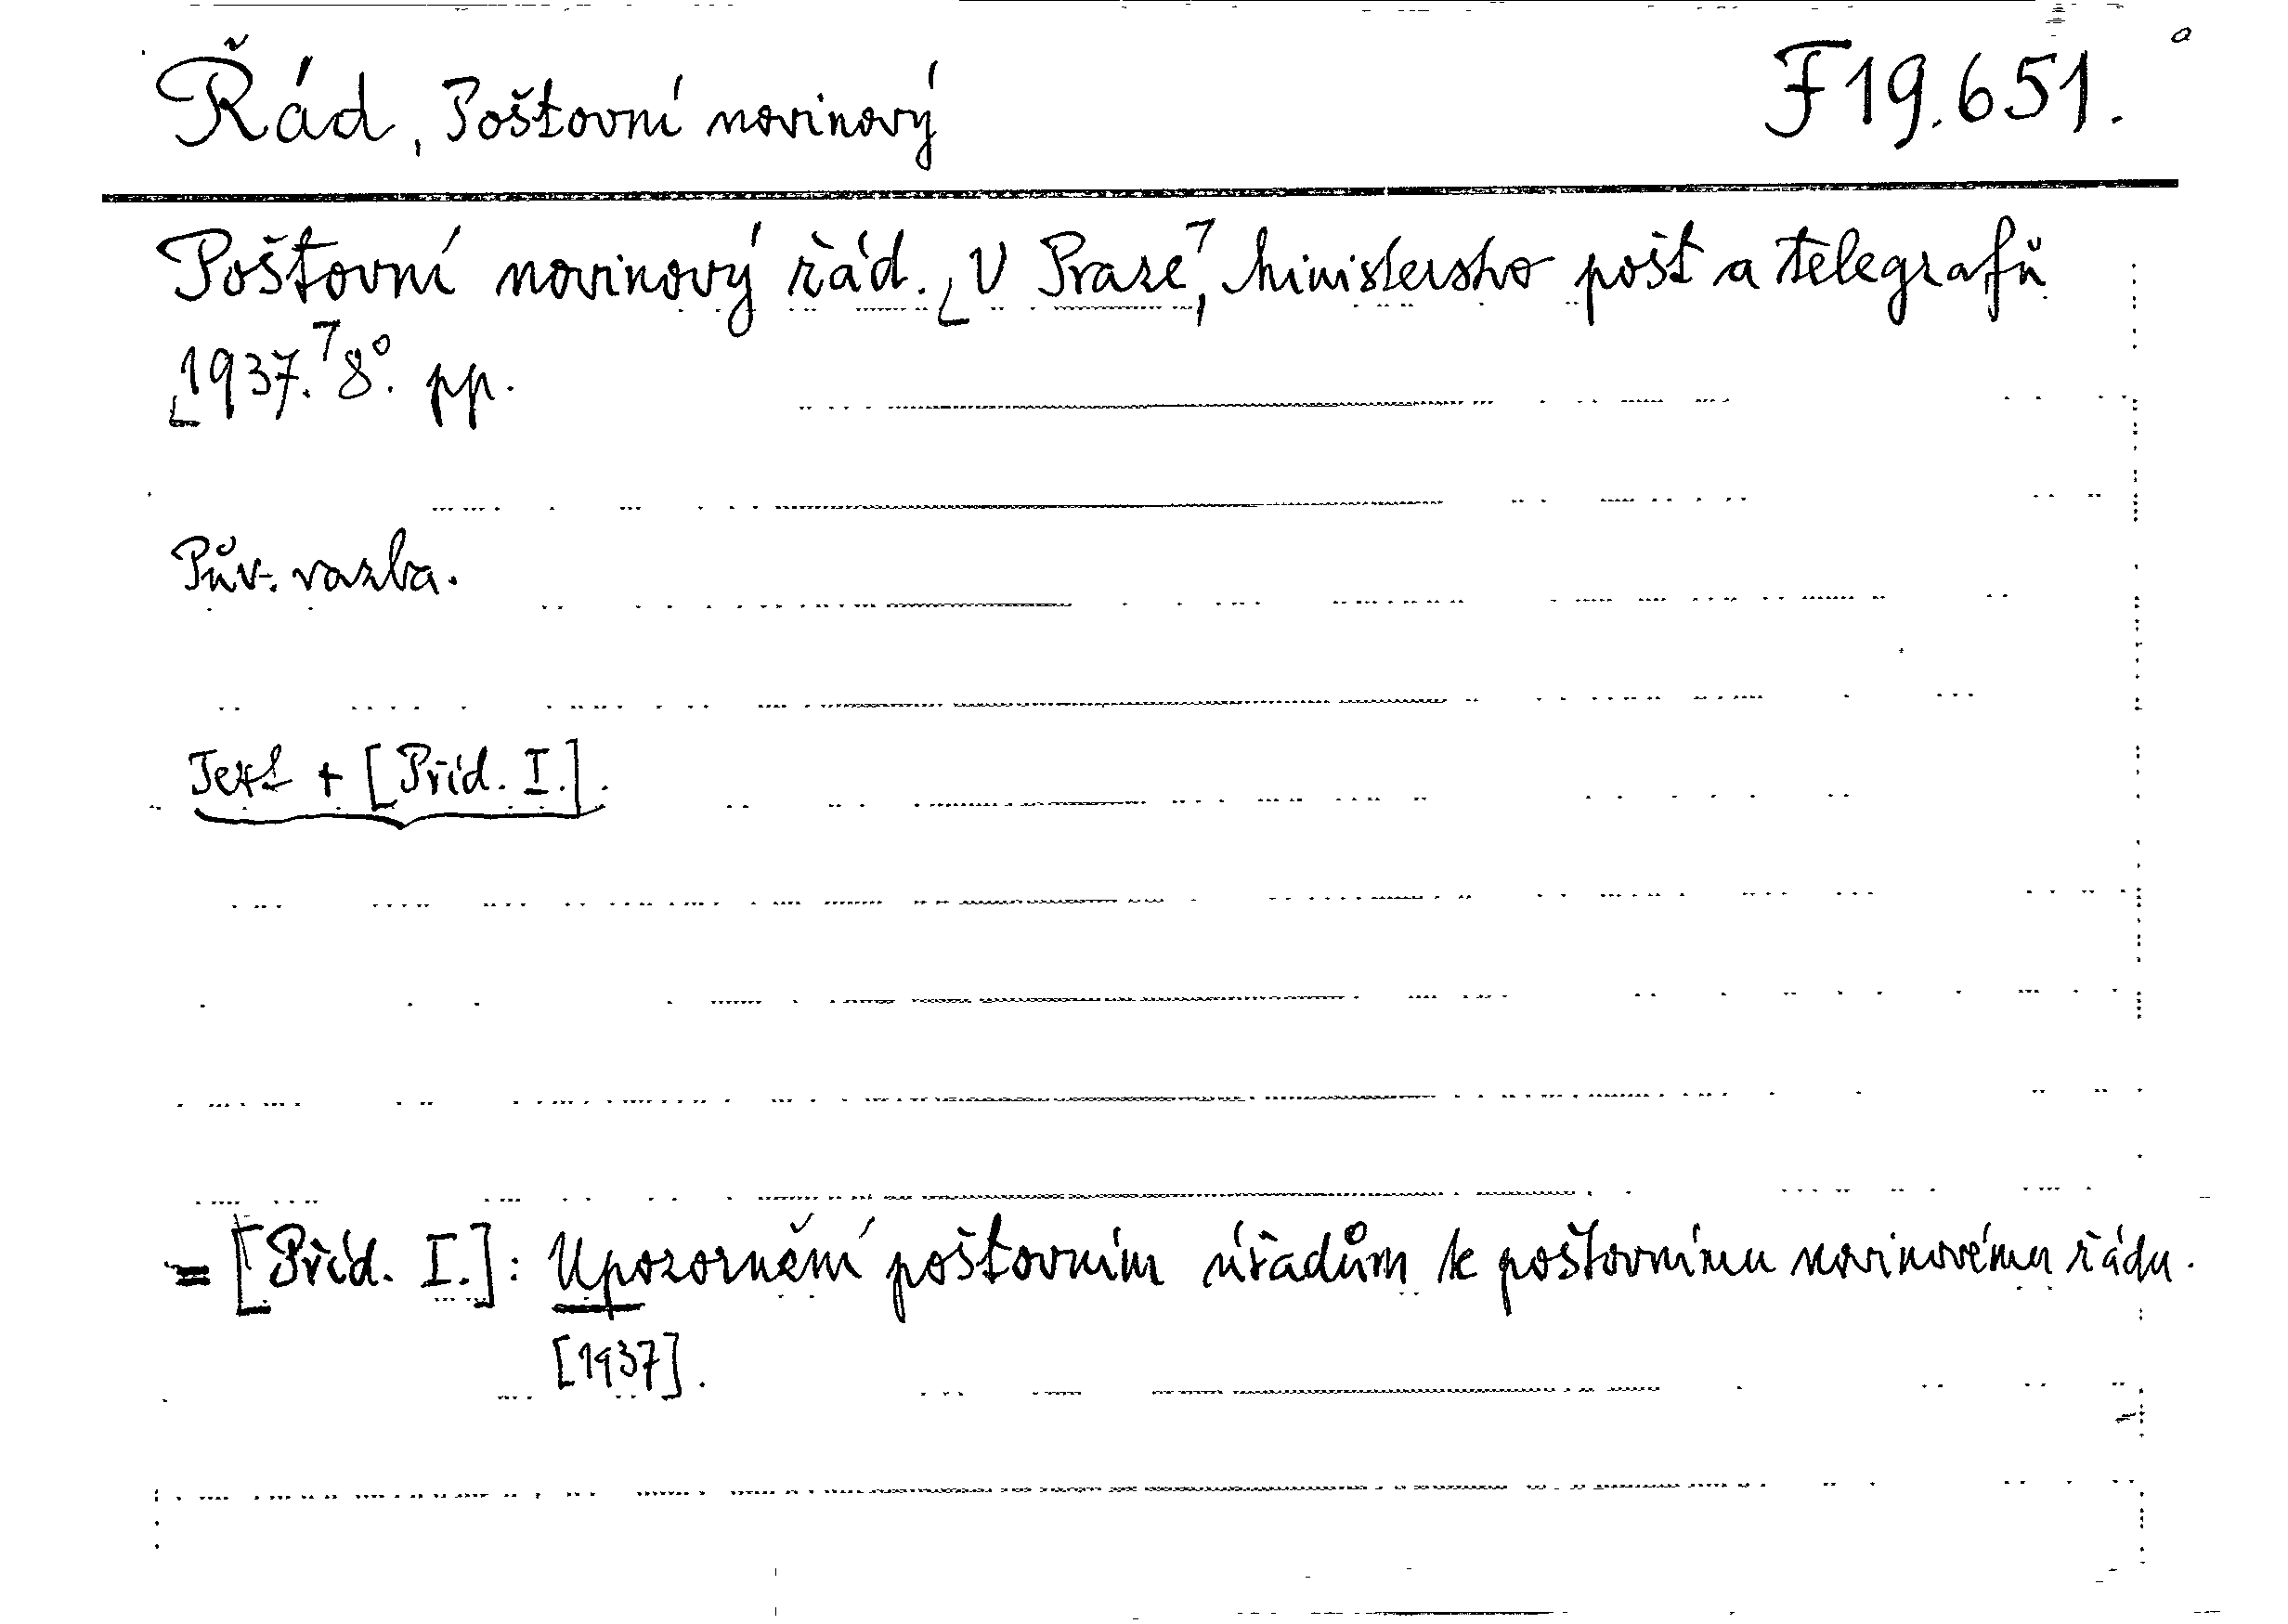 Řád, Poštovní novinový F 19.651.
Poštovní novinový řád. [V Praze], Ministerstvo pošt a telegrafů
[1937.] 8°. pp.
Pův. vazba.
Text + [Příd. I.].
= [Příd. I.]: Upozornění poštovním úřadům k poštovnímu novinovému řádu.
[1937].